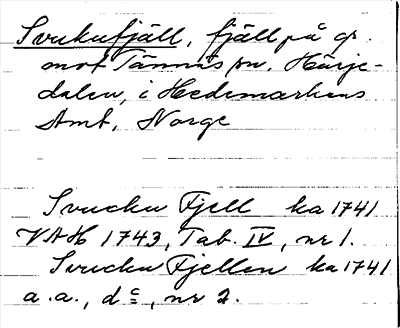 Svukufjäll, fjäll på gr.
mot Tännäs sn. Härje-
dalen, i Hedemarkens
Amt, Norge
Svucku Fjell ka 1741
VAH 1743, Tab. IV, nr 1.
Svucku Fjellen ka 1741
a. a., d:c, nr 2.